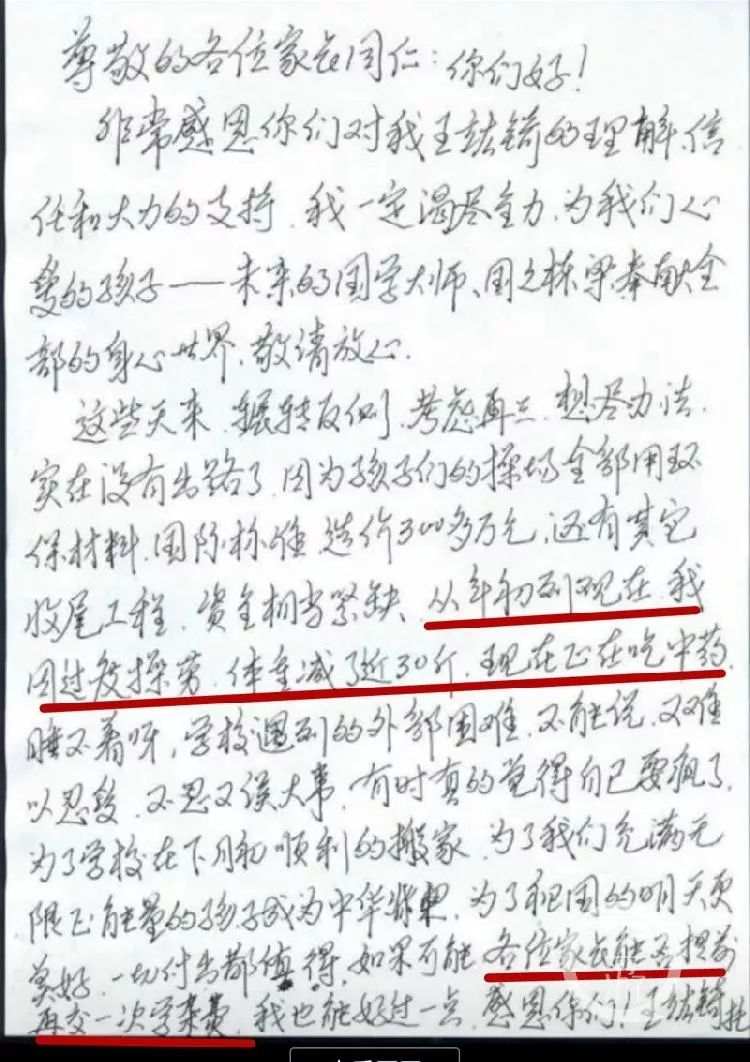 尊敬的各位家长同仁：你们好！
非常感恩你们对我王喆锜的理解、信
任和大力的支持，我一定竭尽全力，为我们心
爱的孩子——未来的国学大师、国之栋梁奉献全
部的身心世界，敬请放心.
这些天来，辗转反侧，考虑再三，想尽办法，
实在没有出路了，因为孩子们的操场全部用环
保材料，国际标准，造价300多万元，还有其它
收尾工程，资金相当紧缺，从年初到现在，我
因过度操劳，体重减了近30斤，现在正在吃中药，
睡不着呀，学校遇到的外部困难，不能说，又难
以忍受，不忍又误大事，有时真的觉得自己要疯了，
为了学校在下月初顺利的搬家，为了我们充满无
限正能量的孩子成为中华，为了祖国的明天更
美好，一切付出都值得，如果可能各位家长能否提前
再交一次学杂费，我也能好过一点，感恩你们！王喆锜